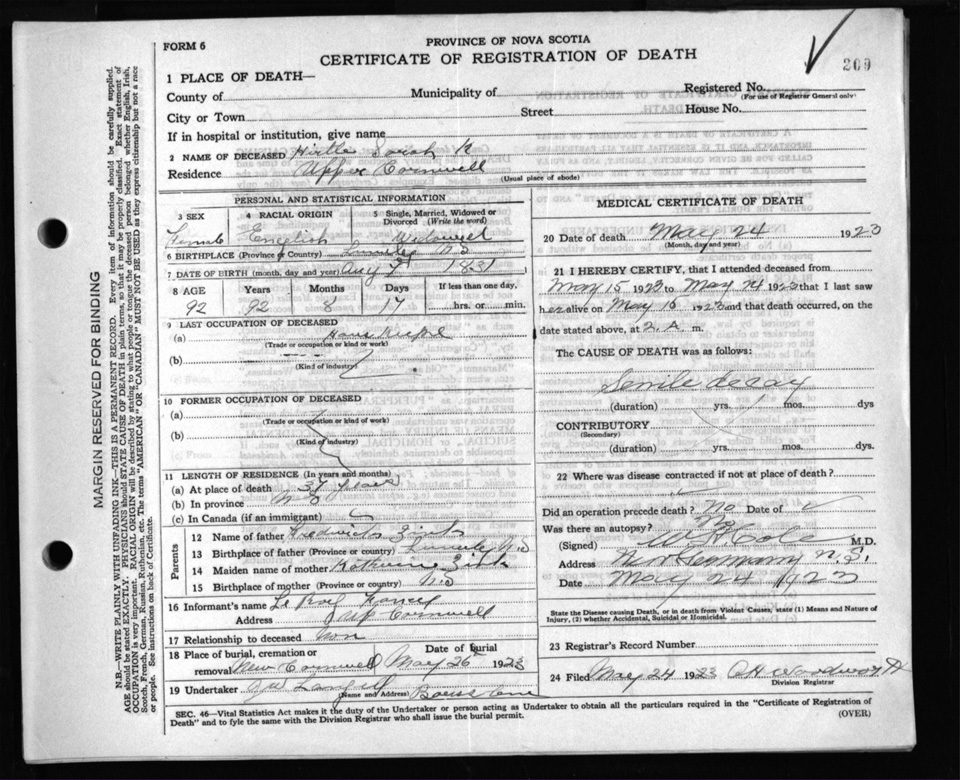 FORM 6
PROVINCE OF NOVA SCOTIA
CERTIFICATE OF REGISTRATION OF DEATH
209
1 PLACE OF DEATH—
County of Municipality of Registered No.
(For use of Registrar General only)
City or Town Street House No.
If in hospital or institution, give name
2 NAME OF DECEASED Hirtle Sarah
Residence Upper Cornwell
(Usual place of abode)
PERSONAL AND STATISTICAL INFORMATION
3 SEX 4 RACIAL ORIGIN 5 Single, Married, Widowed or Divorced (Write the word)
Female English Widowed
6 BIRTHPLACE (Province or Country) N.S
7 DATE OF BIRTH (month, day and year) Aug 7 1831
8 AGE Years Months Days If less than one day,
92 92 8 17 hrs. or min.
9 LAST OCCUPATION OF DECEASED
(a)
(Trade or occupation or kind or work)
(b)
(Kind of industry)
10 FORMER OCCUPATION OF DECEASED
(a)
(Trade or occupation or kind of work)
(b)
(Kind of industry)
11 LENGTH OF RESIDENCE (In years and months)
(a) At place of death 37 years
(b) In province
(c) In Canada (if an immigrant)
Parents
12 Name of father Fredrick
13 Birthplace of father (Province or country) N.S
14 Maiden name of mother
15 Birthplace of mother (Province or country) N.S
16 Informant's name
Address Up Cornwell
17 Relationship to deceased non
18 Place of burial, cremation or removal New Cornwell Date of burial May 26 1923
19 Undertaker
(Name and Address)
MEDICAL CERTIFICATE OF DEATH
20 Date of death May 24 1923
(Month, day and year)
21 I HEREBY CERTIFY, that I attended deceased from
May 15 1923 to May 24 1923 that I last saw
her alive on May 15 1923 and that death occurred, on the
date stated above, at 2. A. m.
The CAUSE OF DEATH was as follows:
Senile decay
(duration) yrs. mos. dys
CONTRIBUTORY
(Secondary)
(duration) yrs. mos. dys.
22 Where was disease contracted if not at place of death?
Did an operation precede death? no Date of
Was there an autopsy? no
(Signed) Cole M.D.
Address New Germany N.S.
Date May 24 1923
State the Disease causing Death, or in death from Violent Causes, state (1) Means and Nature of
Injury, (2) whether Accidental, Suicidal or Homicidal.
23 Registrar's Record Number
24 Filed May 24 1923
Division Registrar
SEC. 46—Vital Statistics Act makes it the duty of the Undertaker or person acting as Undertaker to obtain all the particulars required in the "Certificate of Registration of
Death" and to fyle the same with the Division Registrar who shall issue the burial permit. (OVER)
MARGIN RESERVED FOR BINDING
N.B.—WRITE PLAINLY WITH UNFADING INK—THIS IS A PERMANENT RECORD. Every item of information should be carefully supplied.
AGE should be stated EXACTLY. PHYSICIANS should STATE CAUSE OF DEATH in plain terms, so that it may be properly classified. Exact statement of
OCCUPATION is very important. RACIAL ORIGIN will be described by stating to what people or tongue the deceased person belonged whether English, Irish,
Scotch, French, German, Russian, Ruthenian, etc. The terms "AMERICAN" OR "CANADIAN" MUST NOT BE USED as they express citizenship but not a race
or people. See instructions on back of Certificate.